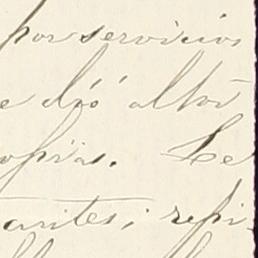 por servicios
e dió altor
opias. Le
arites; repi-